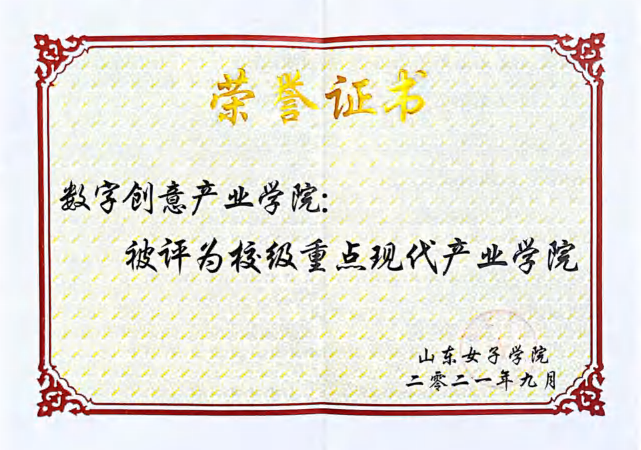 荣誉证书
数字创意产业学院:
被评为校级重点现代产业学院
山东女子学院
二零二一年九月